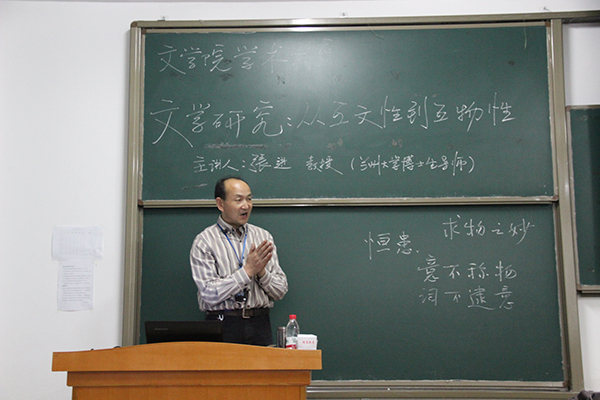 文学院学术
文学研究:从互文性到互物性
主讲人:張进 教授(兰州大学博士生导师)
求物之妙
恒患、
意不称物
词不逮意